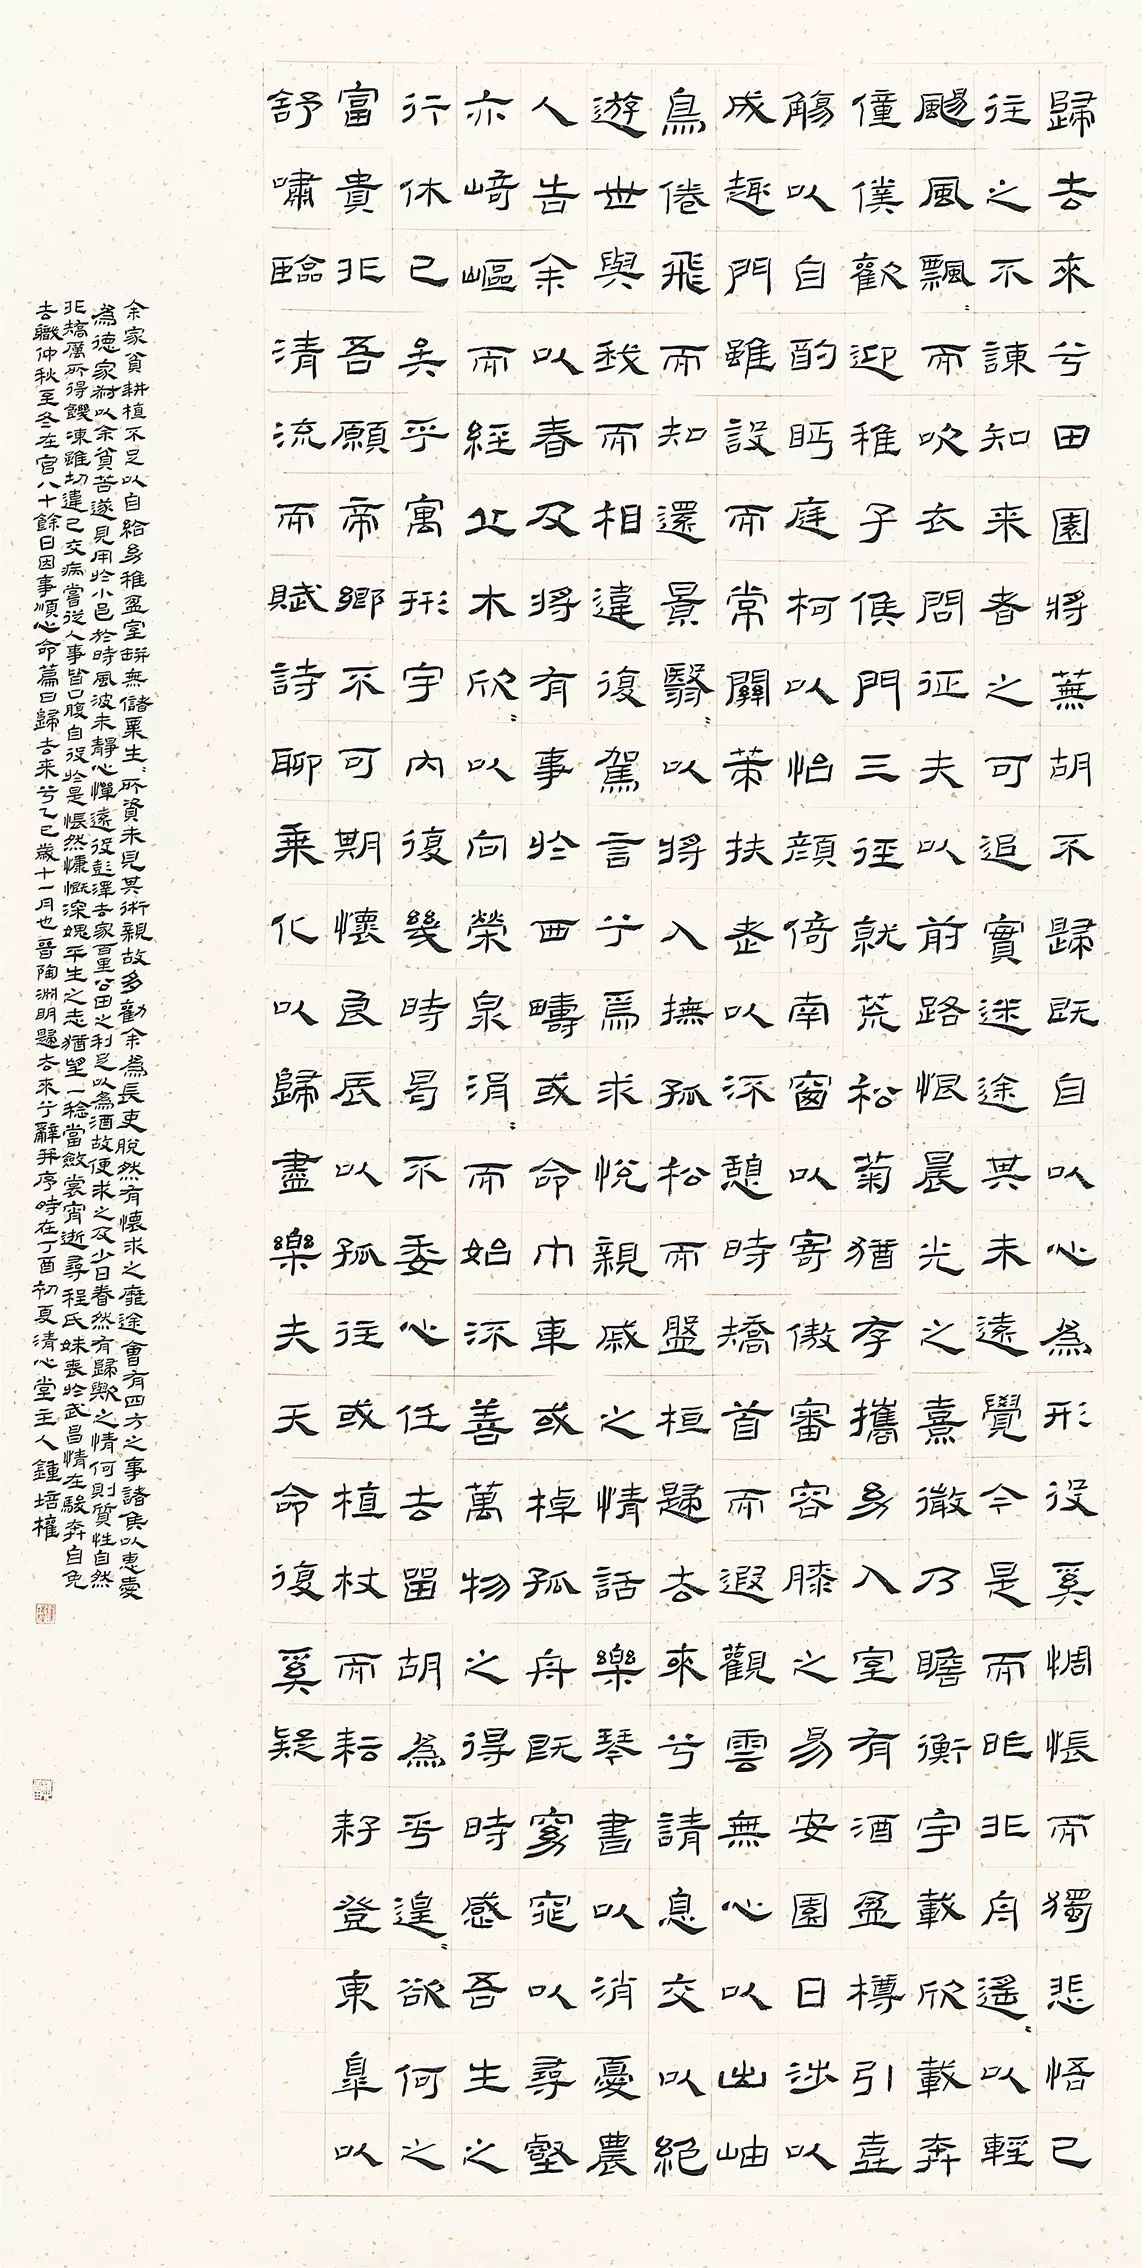 歸去來兮田園將蕪胡不歸既自以心為形役奚惆悵而獨悲悟已
往之不諫知来者之可追實迷途其未遠覺今是而昨非舟遙〻以輕
颺風飄〻而吹衣問征夫以前路恨晨光之熹微乃瞻衡宇載欣載奔
僮僕歡迎稚子侯門三徑就荒松菊猶存攜幼入室有酒盈樽引壺
觴以自酌眄庭柯以怡顏倚南窗以寄傲審容膝之易安園日涉以
成趣門雖設而常關策扶老以流憩時矯首而遐觀雲無心以出岫
鳥倦飛而知還景翳〻以將入撫孤松而盤桓歸去來兮請息交以絕
遊世與我而相違復駕言兮焉求悅親戚之情話樂琴書以消憂農
人告余以春及將有事於西疇或命巾車或棹孤舟既窈窕以尋壑
亦崎嶇而經丘木欣〻以向榮泉涓〻而始流善萬物之得時感吾生之
行休已矣乎寓形宇內復幾時曷不委心任去留胡為乎遑〻欲何之
富貴非吾願帝鄉不可期懷良辰以孤往或植杖而耘耔登東皋以
舒嘯臨清流而賦詩聊乘化以歸盡樂夫天命復奚疑
余家貧耕植不足以自給幼稚盈室缾無儲粟生〻所資未見其術親故多勸余為長吏脫然有懷求之靡途會有四方之事諸侯以惠愛
為德家叔以余貧苦遂見用於小邑於時風波未靜心憚遠役彭澤去家百里公田之利足以為酒故便求之及少日眷然有歸歟之情何則質性自然
非矯厲所得饑凍雖切違己交病嘗從人事皆口腹自役於是悵然慷慨深媿平生之志猶望一稔當斂裳宵逝尋程氏妹喪於武昌情在駿奔自免
去職仲秋至冬在官八十餘日因事順心命篇曰歸去来兮乙巳歲十一月也晉陶淵明歸去來兮辭并序時在丁酉初夏清心堂主人鍾培權